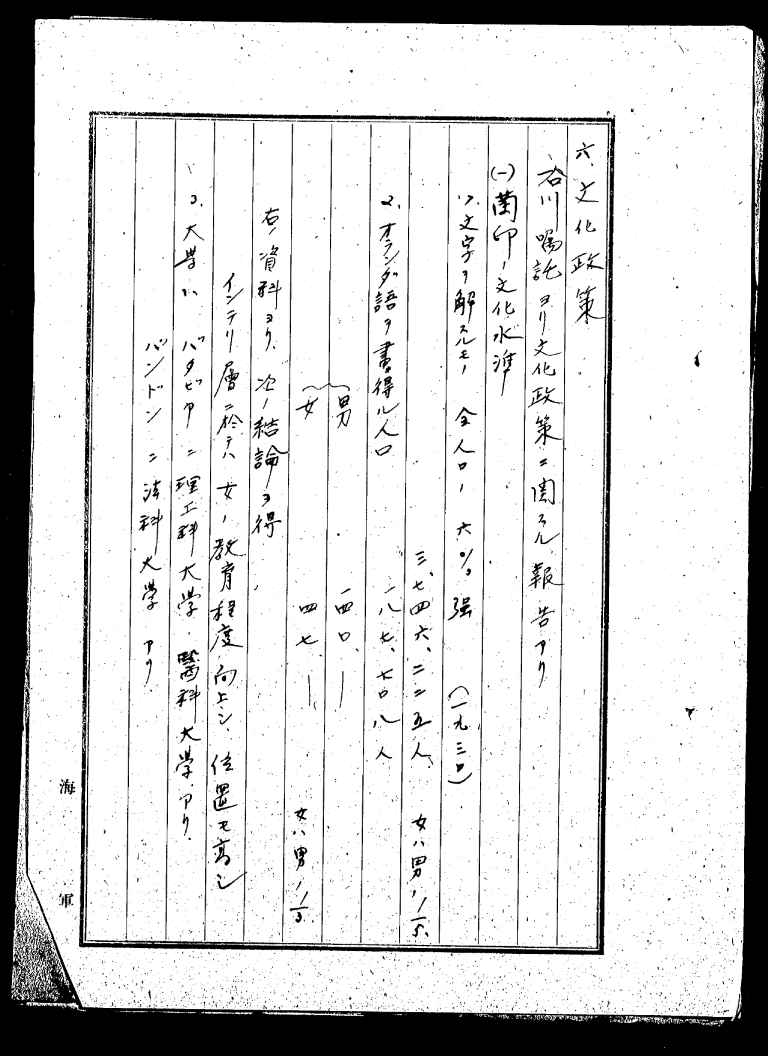 六、文化政策
谷川嘱託ヨリ文化政策ニ関スル報告アリ
(一)蘭印ノ文化水準
1、文字ヲ解スルモノ 全人口ノ 六% 強 (一九三〇)
三、七四六、二二五人、 女ハ男ノ1/5、
2、オランダ語ヲ書得ル人口 一八七、七〇八人
男 一四〇、—
女 四七、— 女ハ男ノ1/3、
右ノ資料ヨリ、次ノ結論ヲ得、
インテリ層ニ於テハ女ノ教育程度向上シ、位置モ高シ
3、大学ハ、バタビヤニ理工科大学、醫科大学アリ、
バンドンニ法科大学アリ、
海軍